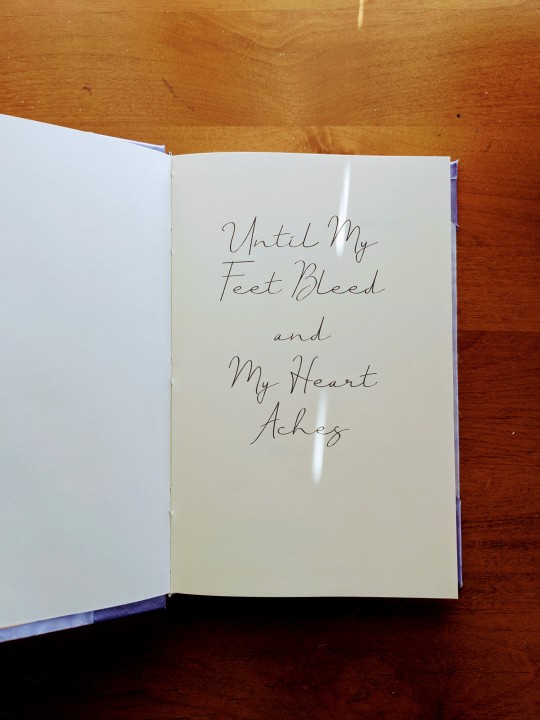 Until My
Feet Bleed
and
My Heart
Aches